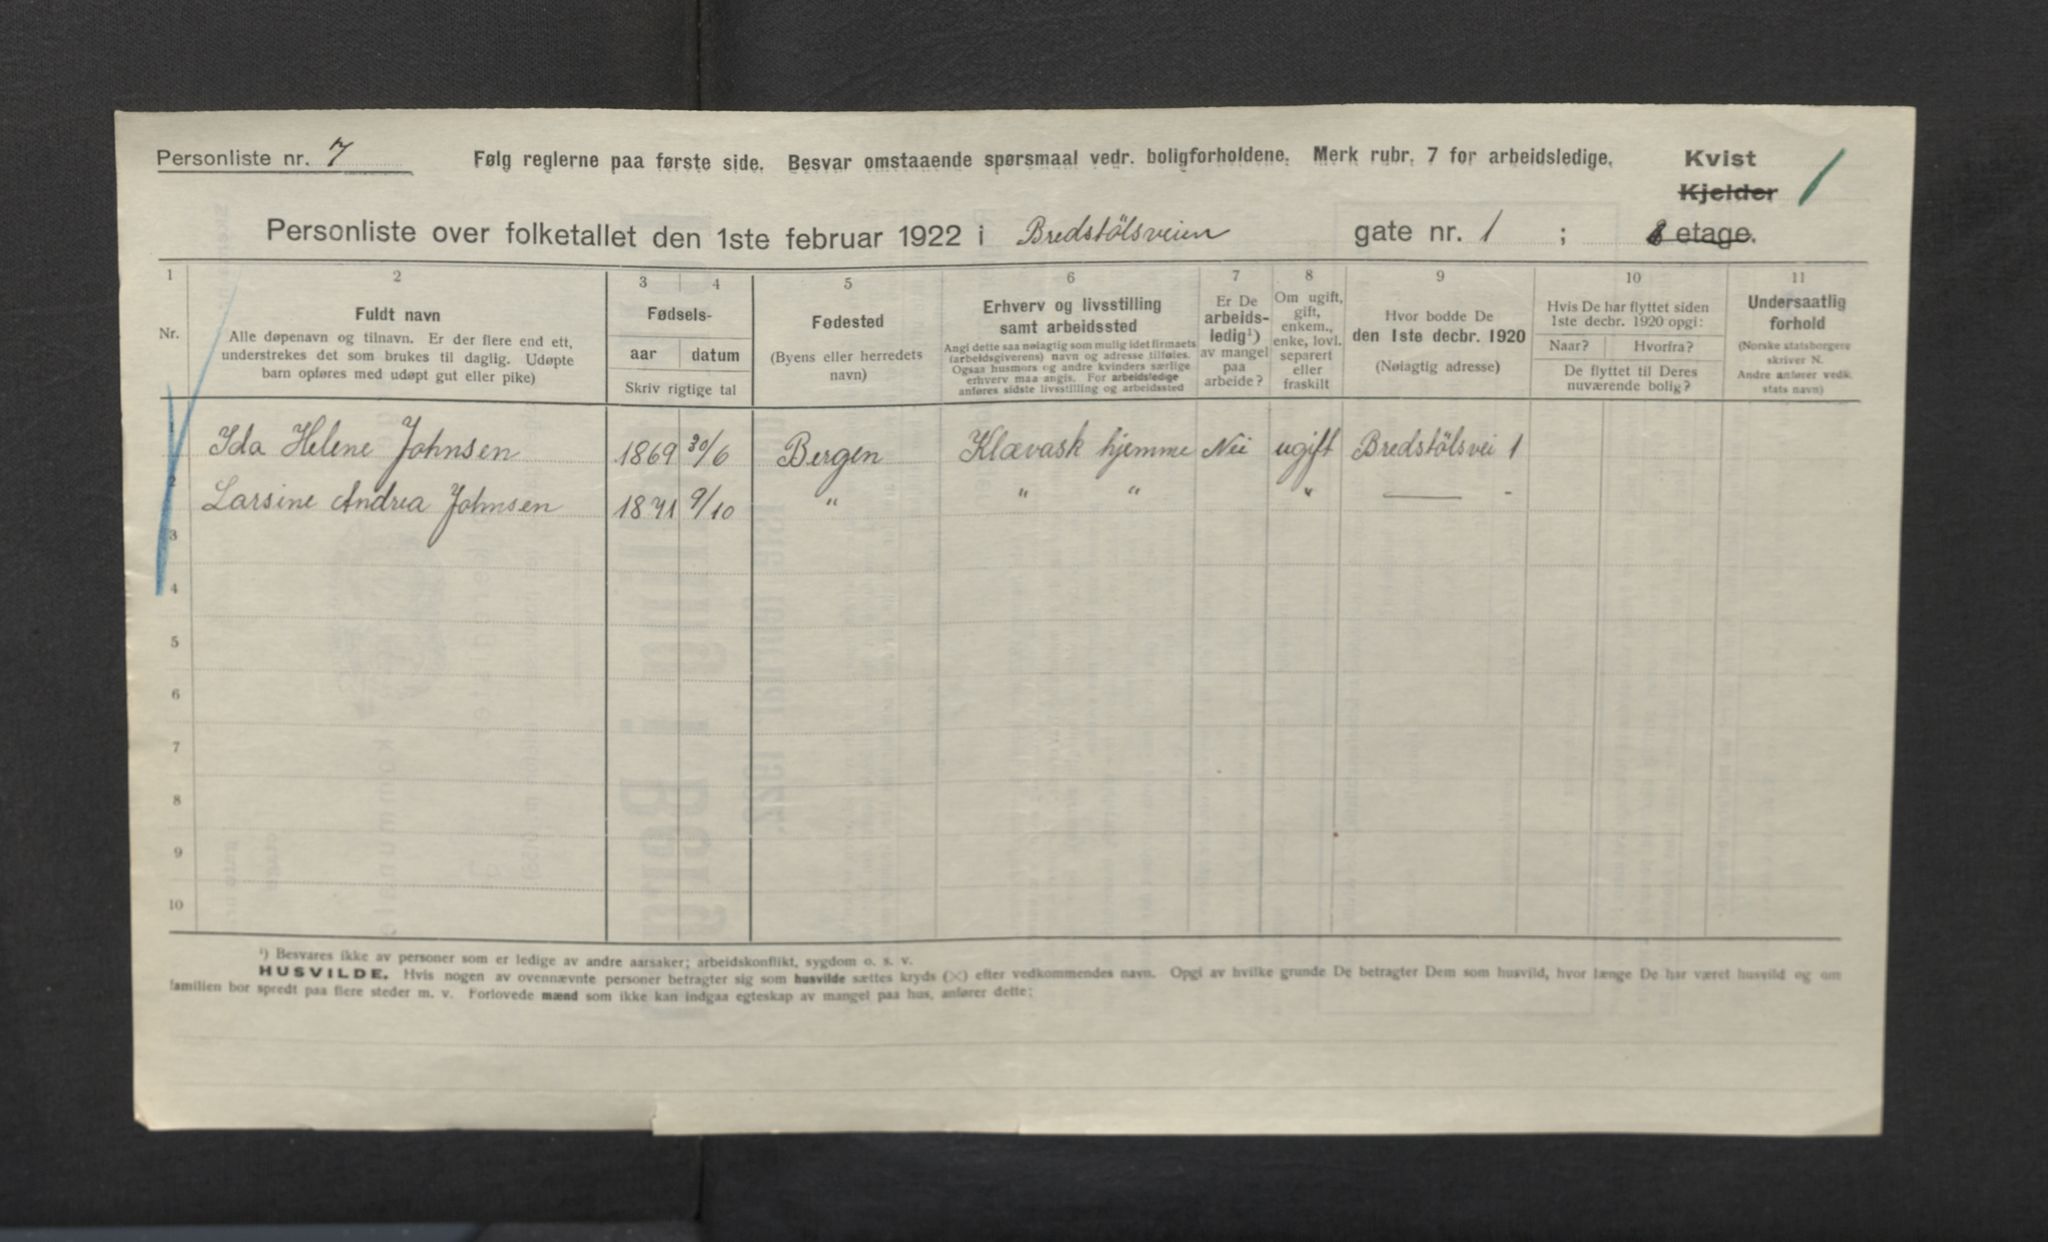 Personliste nr. 7
Følg reglerne paa første side. Besvar omstaaende spørsmaal vedr. boligforholdene. Merk rubr. 7 for arbeidsledige.
Kvist
Kjelder
Personliste over folketallet den 1ste februar 1922 i Bredstölsveien gate nr. 1 ; etage.
1 2 3 4 5 6 7 8 9 10 11
Nr.
Fuldt navn
Alle døpenavn og tilnavn. Er der flere end ett,
understrekes det som brukes til daglig. Udøpte
barn opføres med udøpt gut eller pike)
Fødsels-
aar datum
Skriv rigtige tal
Fødested
(Byens eller herredets
navn)
Erhverv og livsstilling
samt arbeidssted
Angi dette saa nøiagtig som mulig idet firmaets
(arbeidsgiverens) navn og adresse tilføies.
Ogsaa husmors og andre kvinders særlige
erhverv maa angis. For arbeidsledige
anføres sidste livsstilling og arbeidssted
Er De
arbeids-
ledig¹)
av mangel
paa
arbeide?
Om ugift,
gift,
enkem.,
enke, lovl.
separert
eller
fraskilt
Hvor bodde De
den 1ste decbr. 1920
(Nøiagtig adresse)
Hvis De har flyttet siden
1ste decbr. 1920 opgi:
Naar? Hvorfra?
De flyttet til Deres
nuværende bolig?
Undersaatlig
forhold
(Norske statsborgere
skriver N.
Andre anfører vedk.
stats navn)
1 Ida Helene Johnsen 1869 30/6 Bergen Klævask hjemme Nei ugift Bredstölsvei 1
2 Larsine Andrea Johnsen 1871 9/10 " " " " — -
3
4
5
6
7
8
9
10
¹) Besvares ikke av personer som er ledige av andre aarsaker; arbeidskonflikt, sygdom o. s. v.
HUSVILDE. Hvis nogen av ovennævnte personer betragter sig som husvilde sættes kryds (×) efter vedkommendes navn. Opgi av hvilke grunde De betragter Dem som husvild, hvor længe De har været husvild og om
familien bor spredt paa flere steder m. v. Forlovede mænd som ikke kan indgaa egteskap av mangel paa hus, anfører dette: